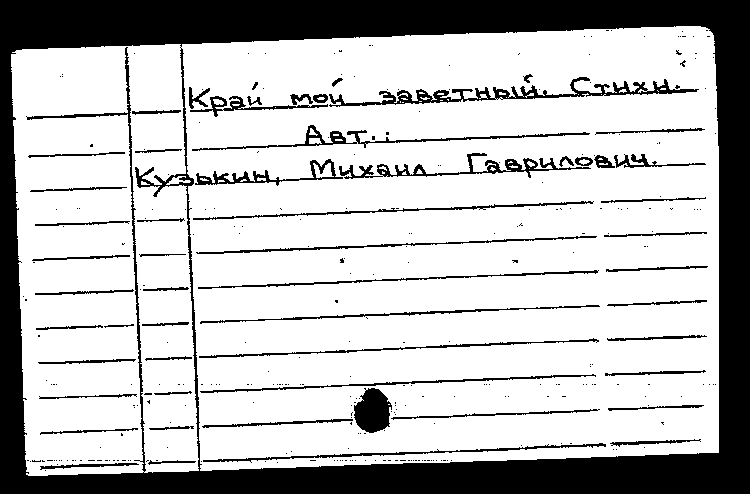 Край мой заветный. Стихи.
Авт.:
Кузькин, Михаил Гаврилович.